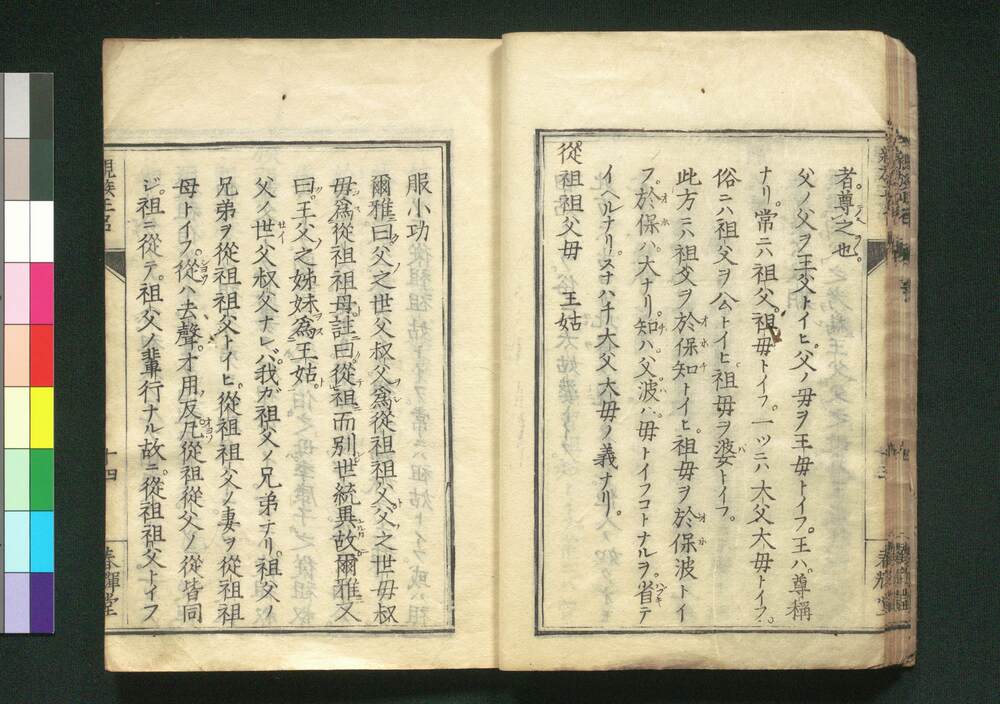 者尊之也。
父ノ父ヲ王父トイヒ。父ノ母ヲ王母トイフ。王ハ。尊稱
ナリ。常ニハ祖父。祖母トイフ。一ツニハ大父大母トイフ。
俗ニハ祖父ヲ公トイヒ。祖母ヲ婆トイフ。
此方ニハ祖父ヲ於保知トイヒ。祖母ヲ於保波トイ
フ。於保ハ。大ナリ。知ハ。父波ハ。母トイフコトナルヲ。省テ
イヘルナリ。スナハチ大父大母ノ義ナリ。
從祖祖父母 王姑
服小功
爾雅曰父之世父叔父爲從祖祖父。父之世母叔
母爲從祖祖母。註曰。從祖而別世統異故。爾雅又
曰。王父之姊妹爲王姑。
父ノ世父叔父ナレバ。我ガ祖父ノ兄弟ナリ。祖父ノ
兄弟ヲ從祖祖父トイヒ。從祖祖父ノ妻ヲ從祖祖
母トイフ。從ハ去聲。才用反。凡從祖從父ノ從皆同
ジ。祖ニ從テ。祖父ノ輩行ナル故ニ。從祖祖父トイフ
親族正名
十四
春輝堂